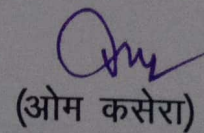 (ओम कसेरा)